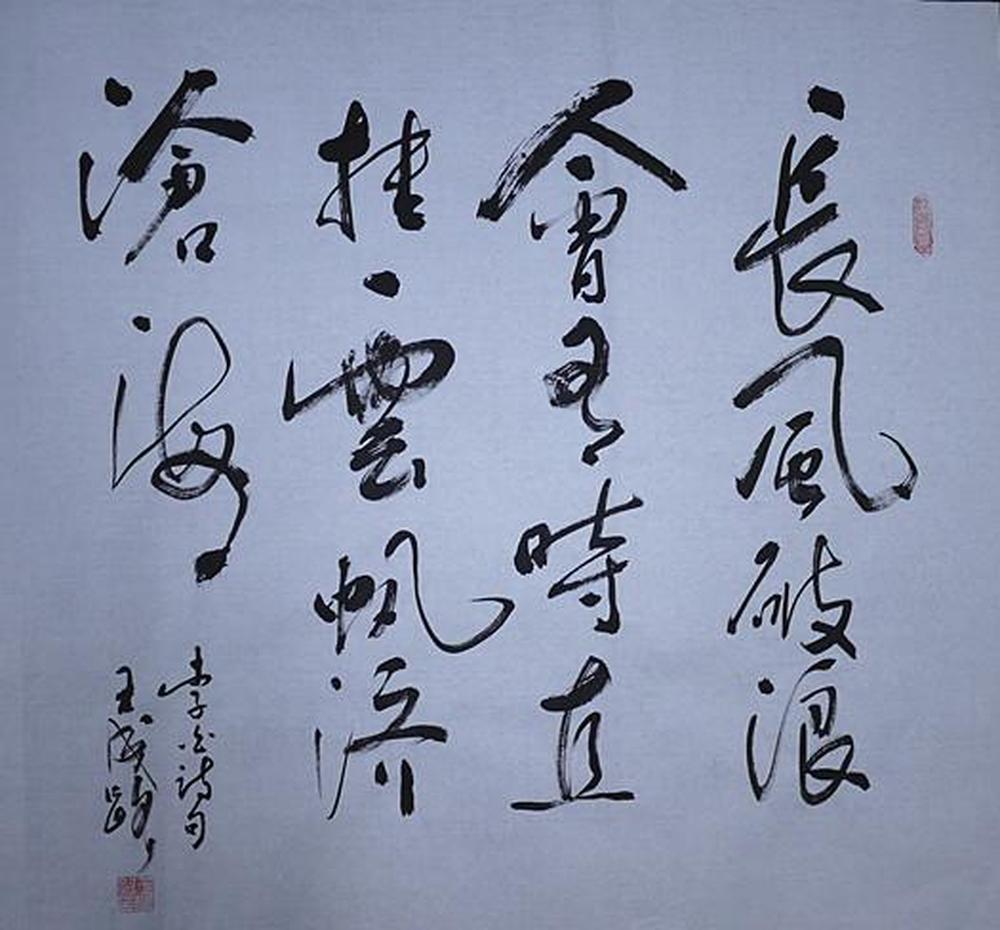 長風破浪
會有時直
挂雲帆濟
滄海
李白詩句
王成